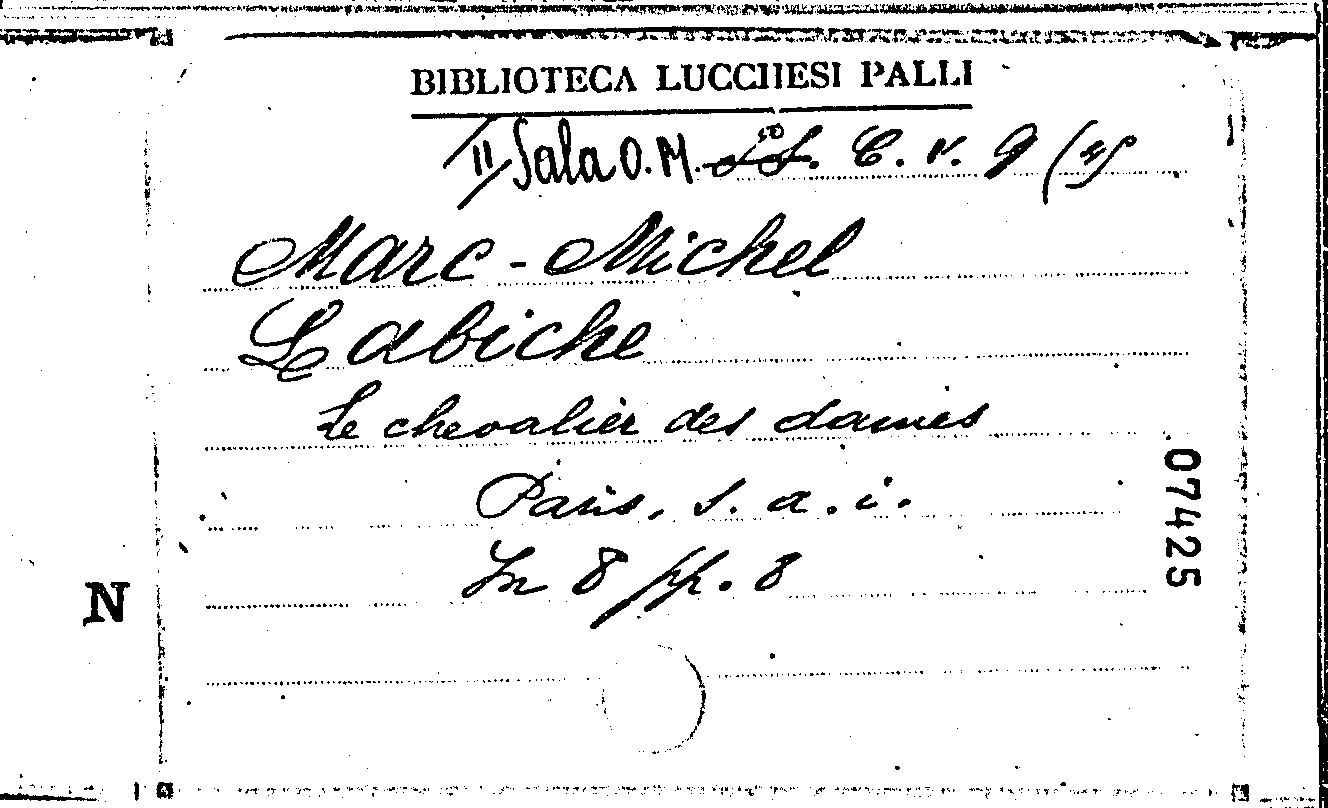 BIBLIOTECA LUCCHESI PALLI
II Sala O. M. C. V. 9 (4)
Marc-Michel
Labiche
Le chevalier des dames
Paris, s. a. i.
In 8 pp. 8
07425
N